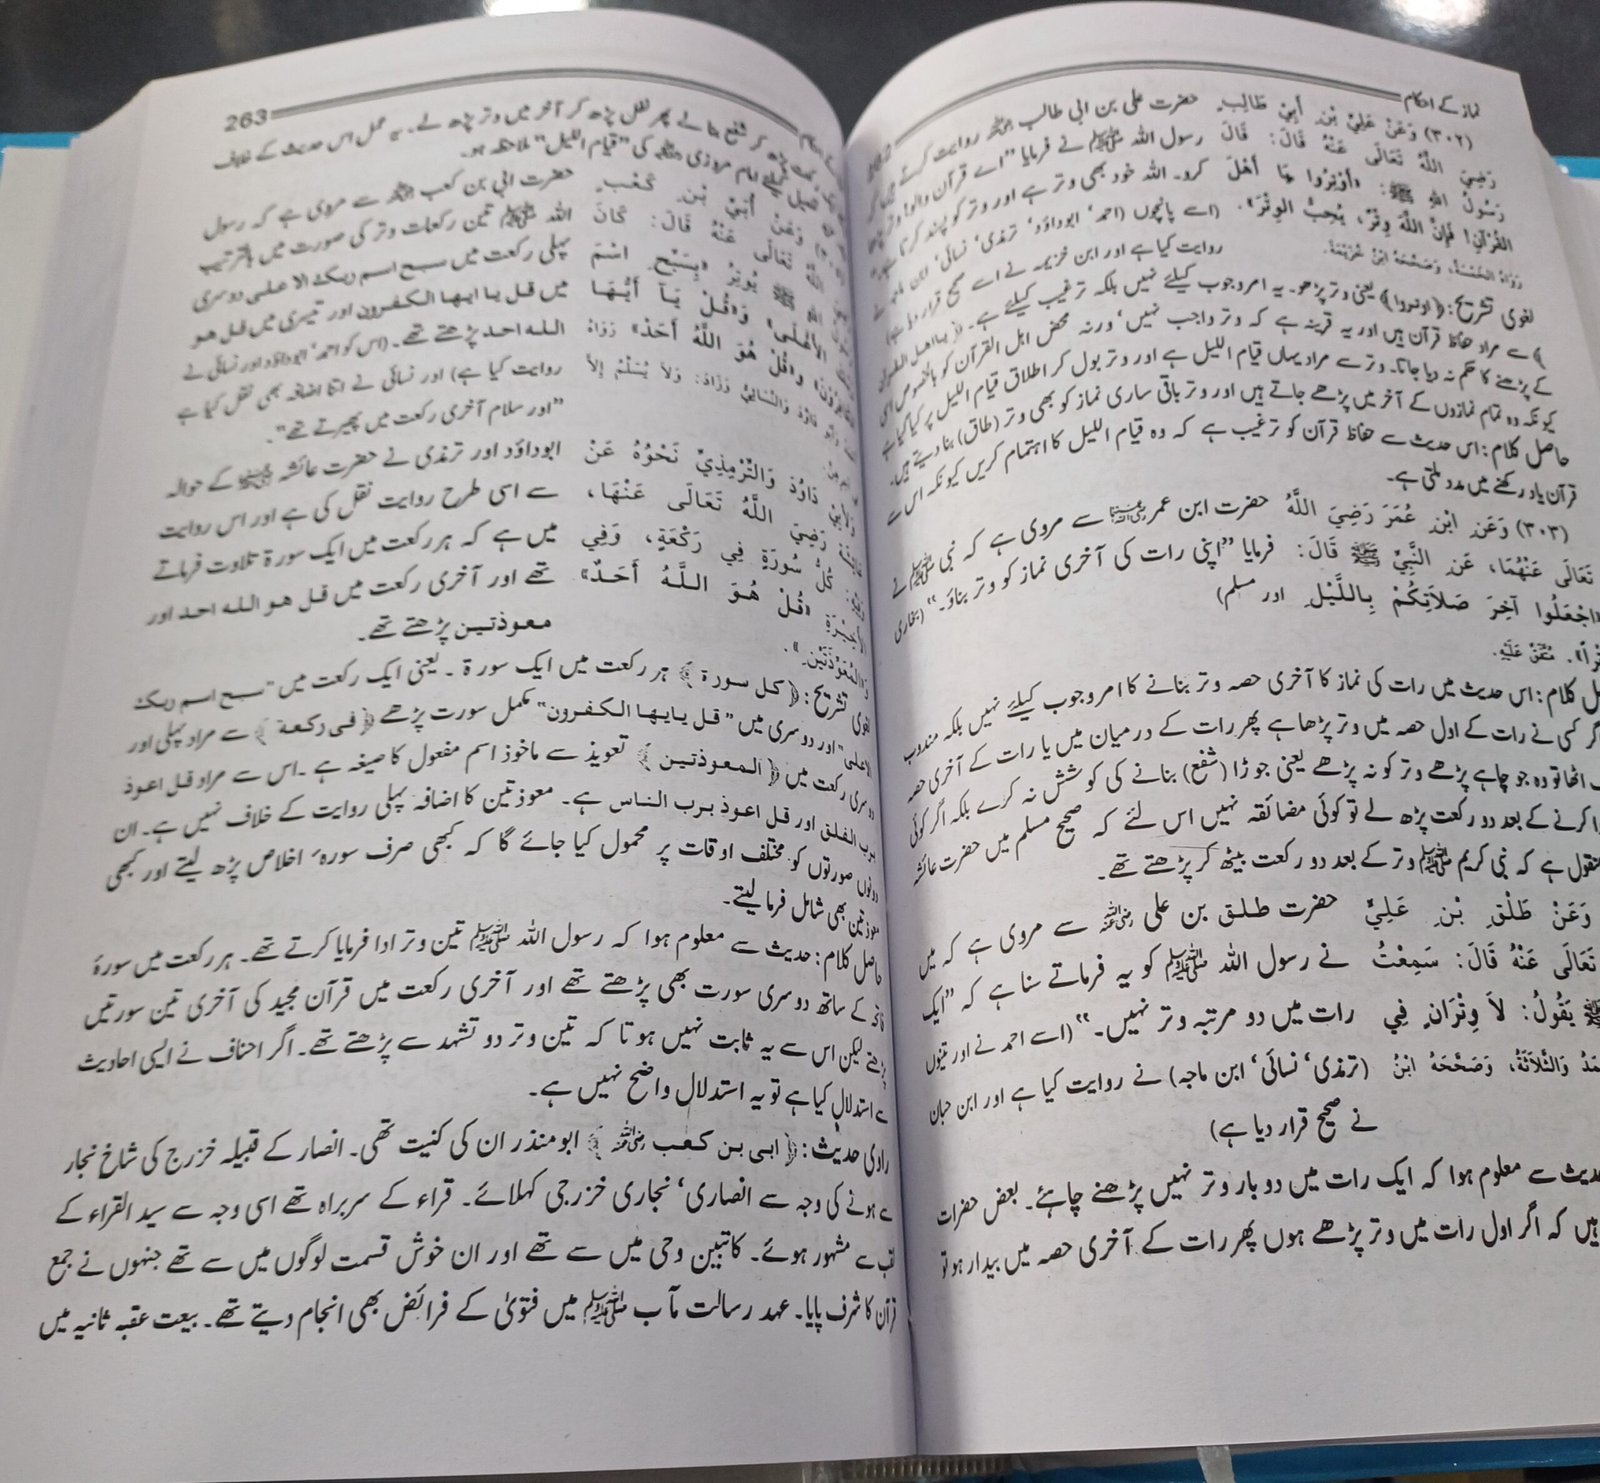 نماز کے احکام
(۳۰۲) وَعَنْ عَلِيِّ بْنِ أَبِي طَالِبٍ حضرت علی بن ابی طالب روایت کرتے
رَضِيَ اللَّهُ تَعَالَى عَنْهُ قَالَ: قَالَ رسول اللہ ﷺ نے فرمایا "اے قرآن والو! وتر
رَسُولُ اللهِ ﷺ: «أَوْتِرُوا يَا أَهْلَ کرو۔ اللہ خود بھی وتر ہے اور وتر کو پسند کرتا
القُرْآنِ! فَإِنَّ اللَّهَ وِتْرٌ، يُحِبُّ الوِتْرَ». (اسے پانچوں (احمد' ابوداؤد' ترمذی' نسائی'
رَوَاهُ الخَمْسَةُ، وَصَحَّحَهُ ابْنُ خُزَيْمَةَ. روایت کیا ہے اور ابن خزیمہ نے اسے صحیح قرار دیا ہے)
لغوی تشریح: ﴿اوتروا﴾ یعنی وتر پڑھو۔ یہ امر وجوب کیلئے نہیں بلکہ ترغیب کیلئے ہے۔
سے مراد حفاظ قرآن ہیں اور یہ قرینہ ہے کہ وتر واجب نہیں' ورنہ محض اہل القرآن کو بالخصوص اس
کے پڑھنے کا حکم نہ دیا جاتا۔ وتر سے مراد یہاں قیام اللیل ہے اور وتر بول کر اطلاق قیام اللیل پر کیا گیا ہے
کیونکہ وہ تمام نمازوں کے آخر میں پڑھے جاتے ہیں اور وتر باقی ساری نماز کو بھی وتر (طاق) بنا دیتے ہیں۔
حاصل کلام: اس حدیث سے حفاظ قرآن کو ترغیب ہے کہ وہ قیام اللیل کا اہتمام کریں کیونکہ اس سے
قرآن یاد رکھنے میں مدد ملتی ہے۔
(۳۰۳) وَعَنِ ابْنِ عُمَرَ رَضِيَ اللَّهُ حضرت ابن عمر سے مروی ہے کہ نبی ﷺ نے
تَعَالَى عَنْهُمَا، عَنِ النَّبِيِّ ﷺ قَالَ: فرمایا "اپنی رات کی آخری نماز کو وتر بناؤ۔" (بخاری
«اجْعَلُوا آخِرَ صَلَاتِكُمْ بِاللَّيْلِ اور مسلم)
مُتَّفَقٌ عَلَيْهِ.
کلام: اس حدیث میں رات کی نماز کا آخری حصہ وتر بنانے کا امر وجوب کیلئے نہیں بلکہ مندوب
کسی نے رات کے اول حصہ میں وتر پڑھا ہے پھر رات کے درمیان میں یا رات کے آخری حصہ
اٹھا تو وہ جو چاہے پڑھے وتر کو نہ پڑھے یعنی جوڑا (شفع) بنانے کی کوشش نہ کرے بلکہ اگر کوئی
کرنے کے بعد دو رکعت پڑھ لے تو کوئی مضائقہ نہیں اس لئے کہ صحیح مسلم میں حضرت عائشہ
ہے کہ نبی کریم ﷺ وتر کے بعد دو رکعت بیٹھ کر پڑھتے تھے۔
وَعَنْ طَلْقِ بْنِ عَلِيٍّ حضرت طلق بن علی سے مروی ہے کہ میں
تَعَالَى عَنْهُ قَالَ: سَمِعْتُ نے رسول اللہ ﷺ کو یہ فرماتے سنا ہے کہ "ایک
يَقُولُ: لَا وِتْرَانِ فِي رات میں دو مرتبہ وتر نہیں۔" (اسے احمد نے اور تینوں
وَالثَّلَاثَةُ، وَصَحَّحَهُ ابْنُ (ترمذی' نسائی' ابن ماجہ) نے روایت کیا ہے اور ابن حبان
نے صحیح قرار دیا ہے)
سے معلوم ہوا کہ ایک رات میں دو بار وتر نہیں پڑھنے چاہئے۔ بعض حضرات
ہیں کہ اگر اول رات میں وتر پڑھے ہوں پھر رات کے آخری حصہ میں بیدار ہو تو
263
پڑھ کر شفع بنا لے پھر نفل پڑھ کر آخر میں وتر پڑھ لے۔ یہ عمل اس حدیث کے خلاف
امام مروزی کی "قیام اللیل" ملاحظہ ہو۔
وَعَنْ أُبَيِّ بْنِ كَعْبٍ حضرت ابی بن کعب سے مروی ہے کہ رسول
اللَّهُ تَعَالَى عَنْهُ قَالَ: كَانَ اللہ ﷺ تین رکعات وتر کی صورت میں بالترتیب
ﷺ يُوتِرُ بِسَبِّحِ اسْمَ پہلی رکعت میں سبح اسم ربک الا علی دوسری
الأَعْلَى وَقُلْ يَا أَيُّهَا میں قل یا ایھا الکفرون اور تیسری میں قل ھو
وَقُلْ هُوَ اللَّهُ أَحَدٌ» رَوَاهُ اللہ احد پڑھتے تھے۔ (اس کو احمد' ابوداؤد اور نسائی نے
دَاوُدَ وَالنَّسَائِيُّ وَزَادَ: وَلَا يُسَلِّمُ إِلَّا روایت کیا ہے) اور نسائی نے اتنا اضافہ بھی نقل کیا ہے
"اور سلام آخری رکعت میں پھیرتے تھے"۔
دَاوُدَ وَالتِّرْمِذِيِّ نَحْوُهُ عَنْ ابوداؤد اور ترمذی نے حضرت عائشہ کے حوالہ
رَضِيَ اللَّهُ تَعَالَى عَنْهَا، سے اسی طرح روایت نقل کی ہے اور اس روایت
كُلُّ سُورَةٍ فِي رَكْعَةٍ، وَفِي میں ہے کہ ہر رکعت میں ایک سورۃ تلاوت فرماتے
«قُلْ هُوَ اللَّهُ أَحَدٌ» تھے اور آخری رکعت میں قل ھو اللہ احد اور
وَالمُعَوِّذَتَيْنِ». معوذتین پڑھتے تھے۔
لغوی تشریح: ﴿کل سورۃ﴾ ہر رکعت میں ایک سورۃ۔ یعنی ایک رکعت میں "سبح اسم ربک
الاعلی" اور دوسری میں "قل یایھا الکفرون" مکمل سورت پڑھے ﴿فی رکعۃ﴾ سے مراد پہلی اور
دوسری رکعت میں ﴿المعوذتین﴾ تعویذ سے ماخوذ اسم مفعول کا صیغہ ہے۔ اس سے مراد قل اعوذ
برب الفلق اور قل اعوذ برب الناس ہے۔ معوذتین کا اضافہ پہلی روایت کے خلاف نہیں ہے۔ ان
دونوں صورتوں کو مختلف اوقات پر محمول کیا جائے گا کہ کبھی صرف سورہ اخلاص پڑھ لیتے اور کبھی
معوذتین بھی شامل فرما لیتے۔
حاصل کلام: حدیث سے معلوم ہوا کہ رسول اللہ ﷺ تین وتر ادا فرمایا کرتے تھے۔ ہر رکعت میں سورۂ
فاتحہ کے ساتھ دوسری سورت بھی پڑھتے تھے اور آخری رکعت میں قرآن مجید کی آخری تین سورتیں
پڑھتے لیکن اس سے یہ ثابت نہیں ہوتا کہ تین وتر دو تشہد سے پڑھتے تھے۔ اگر احناف نے ایسی احادیث
سے استدلال کیا ہے تو یہ استدلال واضح نہیں ہے۔
راوی حدیث: ﴿ابی بن کعب﴾ ابو منذر ان کی کنیت تھی۔ انصار کے قبیلہ خزرج کی شاخ نجار
سے ہونے کی وجہ سے انصاری' نجاری خزرجی کہلائے۔ قراء کے سربراہ تھے اسی وجہ سے سید القراء کے
لقب سے مشہور ہوئے۔ کاتبین وحی میں سے تھے اور ان خوش قسمت لوگوں میں سے تھے جنہوں نے جمع
قرآن کا شرف پایا۔ عہد رسالت مآب ﷺ میں فتویٰ کے فرائض بھی انجام دیتے تھے۔ بیعت عقبہ ثانیہ میں